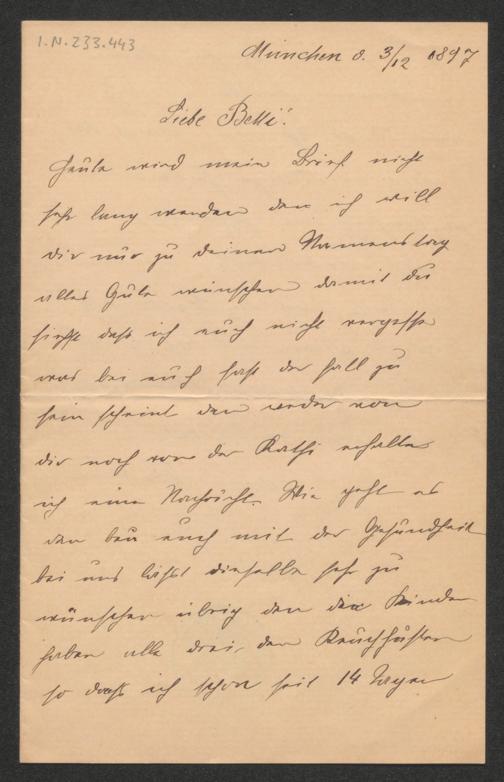 I.N. 233.443
München d. 3/12 1897
Liebe Betti!
Heute wird mein Brief nicht
sehr lang werden den ich will
dir nur zu deinen Namenstag
alles Gute wünschen damit du
siehst daß ich euch nicht vergesse
was bei euch fast der fall zu
sein scheint den weder von
dir noch von der Kathi erhalte
ich eine Nachricht. Wie geht es
den bei euch mit der Gesundheit
bei uns läßt dieselbe sehr zu
wünschen übrig den die Kinder
haben alle drei den Keuchhusten
so daß ich schon seit 14 Tagen